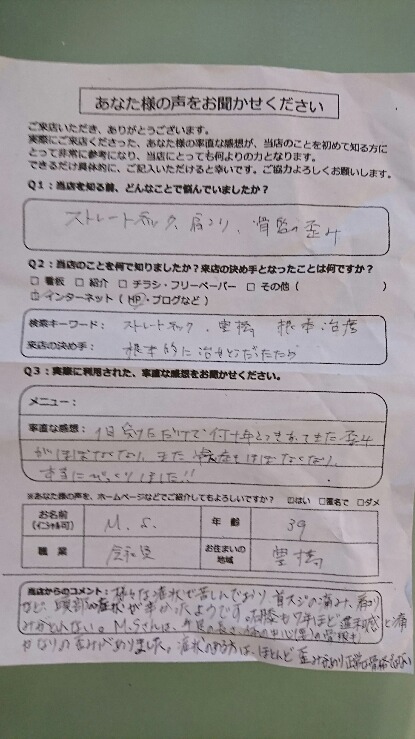 あなた様の声をお聞かせください
ご来店いただき、ありがとうございます。
実際にご来店くださった、あなた様の率直な感想が、当店のことを初めて知る方に
とって非常に参考になり、当店にとっても何よりの力となります。
できるだけ具体的に、ご記入いただけると幸いです。ご協力よろしくお願いします。
Q1：当店を知る前、どんなことで悩んでいましたか？
ストレートネック、肩こり、骨盤の歪み
Q2：当店のことを何で知りましたか？来店の決め手となったことは何ですか？
□ 看板 □ 紹介 □ チラシ・フリーペーパー □ その他（ ）
インターネット（HP・ブログなど）
検索キーワード： ストレートネック、豊橋 根本治療
来店の決め手： 根本的に治せそうだったから
Q3：実際に利用された、率直な感想をお聞かせください。
メニュー：
率直な感想：1回受けただけで
がほぼなくなり、また 症状もほぼなくなり、
びっくりしました!!
※あなた様の声を、ホームページなどでご紹介してもよろしいですか？ □はい □匿名で □ダメ
お名前（イニシャル可） M.S. 年 齢 39
職 業 会社員 お住まいの地域 豊橋
当店からのコメント：様々な症状で苦しんでおり 首スジの痛み、肩こり
など、 症状が
M.Sさんは、
かなりの歪みがありました。症状のある方は、ほとんど歪みがあり